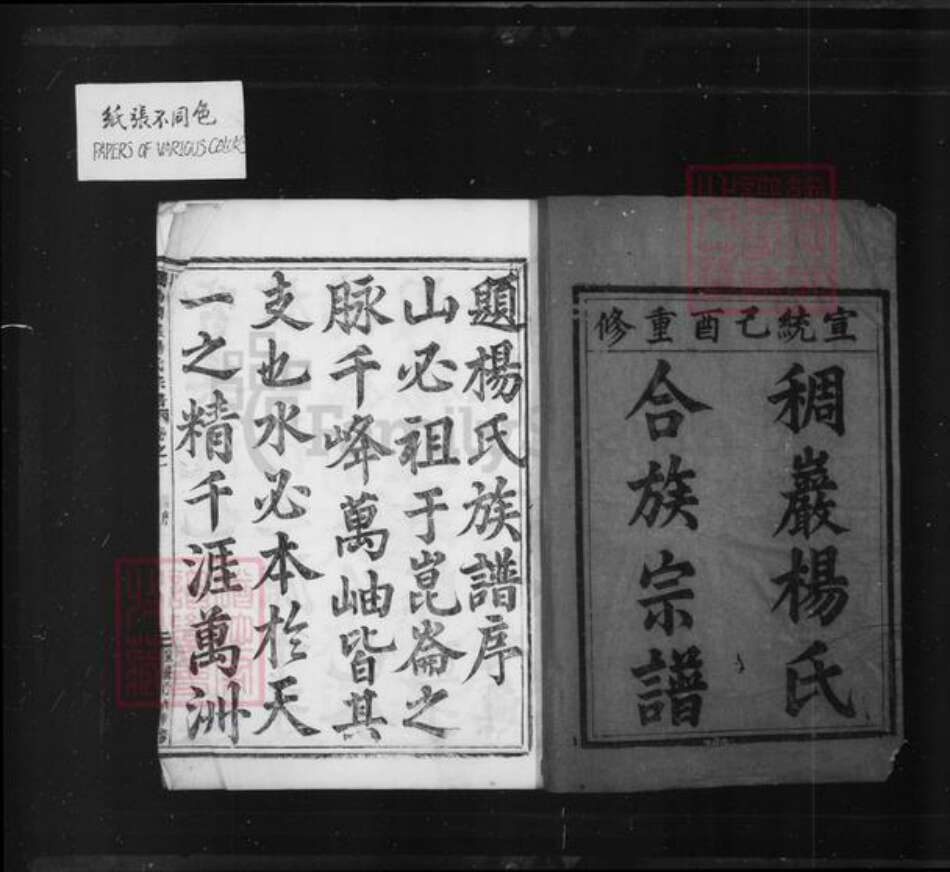 紙張不同色
PAPERS OF VARIOUS COLORS
宣統己酉重修
稠巖楊氏
合族宗譜
題楊氏族譜序
山必祖于崑崙之
脉千峰萬岫皆其
支也水必本於天
一之精千涯萬洲